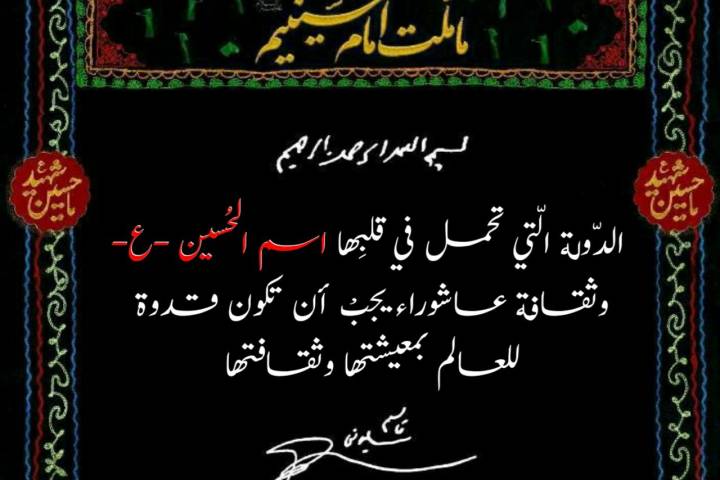 ما ملت امام حسینیم
بسم الله الرحمن الرحیم
ما حسین ع شهید
ما حسین ع شهید
الدّولة الّتي تحمل في قلبِها اسم الحُسين -ع-
وثقافة عاشوراء يجبْ أن تكون قدوة
للعالم بمعيشتها وثقافتها
قاسم
سلیمانی